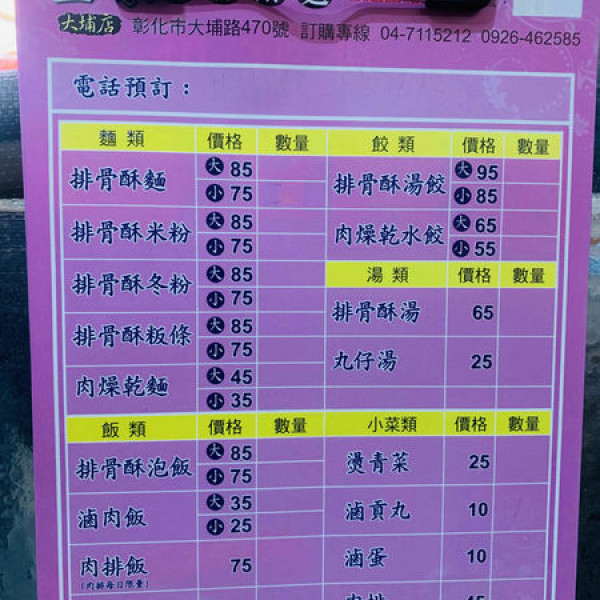 大埔店 彰化市大埔路470號 訂購專線 04-7115212 0926-462585
電話預訂：
麵類 價格 數量
排骨酥麵 大 85
小 75
排骨酥米粉 大 85
小 75
排骨酥冬粉 大 85
小 75
排骨酥粄條 大 85
小 75
肉燥乾麵 大 45
小 35
飯類 價格 數量
排骨酥泡飯 大 85
小 75
滷肉飯 大 35
小 25
肉排飯 75
(肉排每日限量)
餃類 價格 數量
排骨酥湯餃 大 95
小 85
肉燥乾水餃 大 65
小 55
湯類 價格 數量
排骨酥湯 65
丸仔湯 25
小菜類 價格 數量
燙青菜 25
滷貢丸 10
滷蛋 10
肉排 45